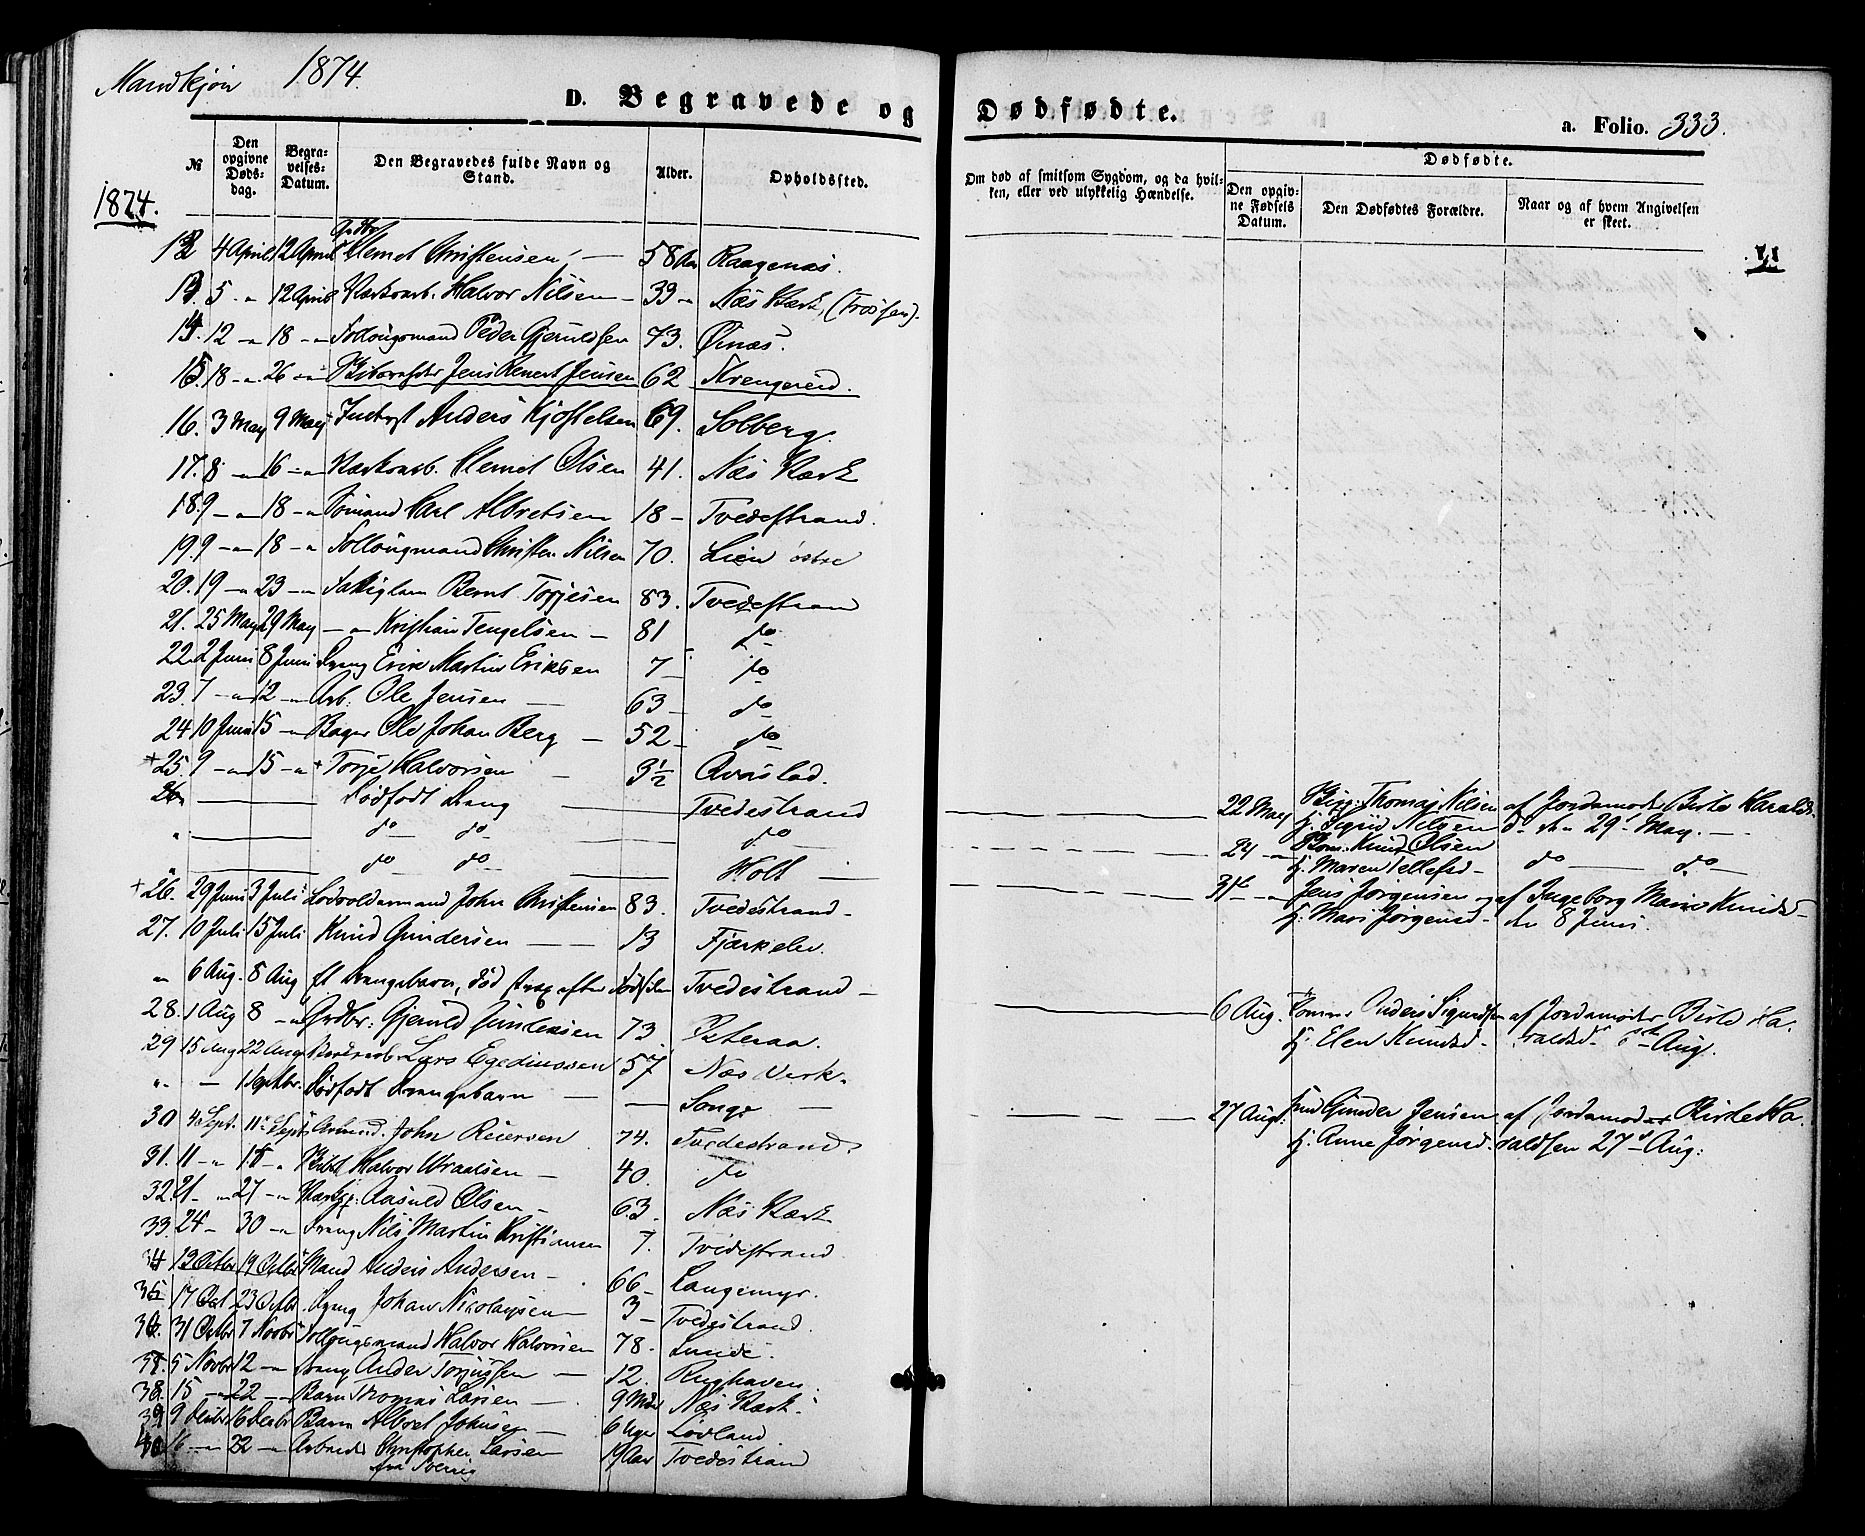 Mandkjøn 1874.
D. Begravede og Dødfødte.
a. Folio. 333.
№ Den opgivne Dødsdag. Begravelses-Datum. Den Begravedes fulde Navn og Stand. Alder. Opholdssted. Om død af smitsom Sygdom, og da hvilken, eller ved ulykkelig Hændelse. Dødfødte. Den opgivne Fødsels Datum. Den Dødfødtes Forældre. Naar og af hvem Angivelsen er skeet.
1874.
12 4 April 12 April Grdbr Clemet Christensen 58 Aar Raagenæs.
13 5 " 12 April Værksarb. Halvor Nilsen 39 " Næs Værk, (Fosssen).
14. 12 " 18 " Follougsmand Peder Gjeruldsen 73. Øinæs.
15. 18 " 26 " Jens Jensen 62 Strengereid.
16. 3 May 9 May Anders Kjøstelsen 69. Solberg.
17. 8 " 16 " Værksarb. Clemet Olsen 41. Næs Værk
18. 9 " 18 " Sømand Carl Albretsen 18 Tvedestrand.
19. 9 " 18 " Follougmand Christen Nilsen 70. Lien østre
20. 19 " 23 " Fattiglem Bernt Torjesen 83. Tvedestrand
21. 25 May 29 May " Kristian Tengelsen 81 do
22. 2 Juni 8 Juni Dreng Erik Martin Eriksen 7 do
23. 7 " 12 " Arb. Ole Jensen 63 do
24 10 Juni 15 " Bager Ole Johan Berg 52 do
+ 25. 9 " 15 " + Torje Halvorsen 3½ Qvastad.
26 Dødfødt Dreng Tvedestrand 22 May Thomas Nilsen af Jordamoder Birte Haralds
" do do do h. Sigrid Nilsen d. den 29 May.
24 " Knud Olsen
do do Holt h. Maren Tellefsd. do do
+ 26. 29 Juni 3 Juli John Christensen 83. Tvedestrand 31te " Jens Jørgensen af Ingeborg Marie Knudsd
27. 10 Juli 15 Juli Knud Gundersen 13 Fjærkelv. h. Mari Jørgensd. den 8 Juni.
" 6 Aug. 8 Aug Et Drengebarn, død strax efter Fødselen Tvedestrand
28. 1 Aug 8 " Grdbr: Gjeruld Gundersen 73. 6 Aug. Anders Sigurdsen af Jordamoder Birte Ha-
h. Elen Knudsd. raldsd 6te Aug.
29 15 Aug 22 Aug Værksarb. Lars Egediussen 57 Næs Værk.
". 1 Septbr. Dødfødt Drengebarn Songe 27 Aug: Gunder Jensen af Jordamoder Birte Ha-
30 4 Sept. 11 Sept John Reiersen 74. Tvedestrand. h. Anne Jørgensd. raldsen 27 d Aug:
31. 11 " 18 " Halvor Wraalsen 40. do
32. 21 " 27 " Aasuld Olsen 63. Næs Værk
33. 24 " 30 " Dreng Nils Martin Kristiansen 7. Tvedestrand
34 13 Octbr 19 Octbr Mand Anders Andersen 66 Langemyr.
35 17 Oct 23 Octb. Dreng Johan Nicolaysen 3 Tvedestrand.
36. 31 Octbr 7 Novbr Follougsmand Halvor Halvorsen 78. Lunde.
37. 5 Novbr 12 " Dreng Anders Torjussen 12.
38. 15 " 22 " Barn Thomas Larsen 9 Mdr Næs Værk.
39 9 Decbr 16 Decbr Barn Albret Johnsen 6 Uger Løvland
40 16 " 22 " Arbeider Christopher Larsen 19 Aar Tvedestrand
fra Sverrig